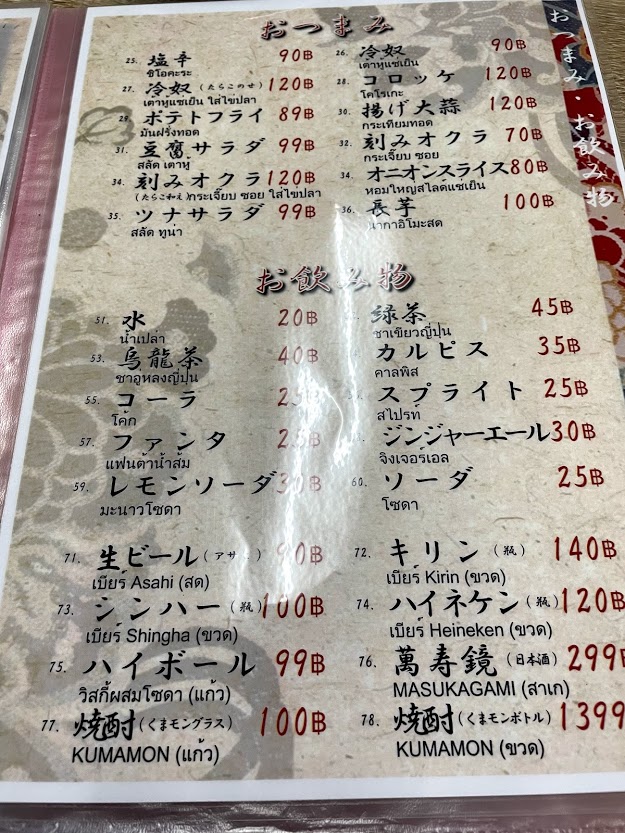 おつまみ
25. 塩辛 90฿
ชิโอคะระ
26. 冷奴 90฿
เต้าหู้แช่เย็น
27. 冷奴(たらこのせ) 120฿
เต้าหู้แช่เย็น ใส่ไข่ปลา
28. コロッケ 120฿
โคโรเกะ
29. ポテトフライ 89฿
มันฝรั่งทอด
30. 揚げ大蒜 120฿
กระเทียมทอด
31. 豆腐サラダ 99฿
สลัด เต้าหู้
32. 刻みオクラ 70฿
กระเจี๊ยบ ซอย
34. 刻みオクラ 120฿
(たらこ和え)กระเจี๊ยบ ซอย ใส่ไข่ปลา
34. オニオンスライス 80฿
หอมใหญ่สไลด์แช่เย็น
35. ツナサラダ 99฿
สลัด ทูน่า
36. 長芋 100฿
นากาอิโมะสด
お飲み物
51. 水 20฿
น้ำเปล่า
緑茶 45฿
ชาเขียวญี่ปุ่น
53. 烏龍茶 40฿
ชาอูหลงญี่ปุ่น
カルピス 35฿
คาลพิส
55. コーラ 25฿
โค้ก
スプライト 25฿
สไปรท์
57. ファンタ 25฿
แฟนต้าน้ำส้ม
ジンジャーエール 30฿
จิงเจอร์เอล
59. レモンソーダ 30฿
มะนาวโซดา
60. ソーダ 25฿
โซดา
71. 生ビール(アサヒ) 90฿
เบียร์ Asahi (สด)
72. キリン(瓶) 140฿
เบียร์ Kirin (ขวด)
73. シンハー(瓶) 100฿
เบียร์ Shingha (ขวด)
74. ハイネケン(瓶) 120฿
เบียร์ Heineken (ขวด)
75. ハイボール 99฿
วิสกี้ผสมโซดา (แก้ว)
76. 萬寿鏡(日本酒) 299฿
MASUKAGAMI (สาเก)
77. 焼酎(くまモングラス) 100฿
KUMAMON (แก้ว)
78. 焼酎(くまモンボトル) 1399
KUMAMON (ขวด)
おつまみ・お飲み物